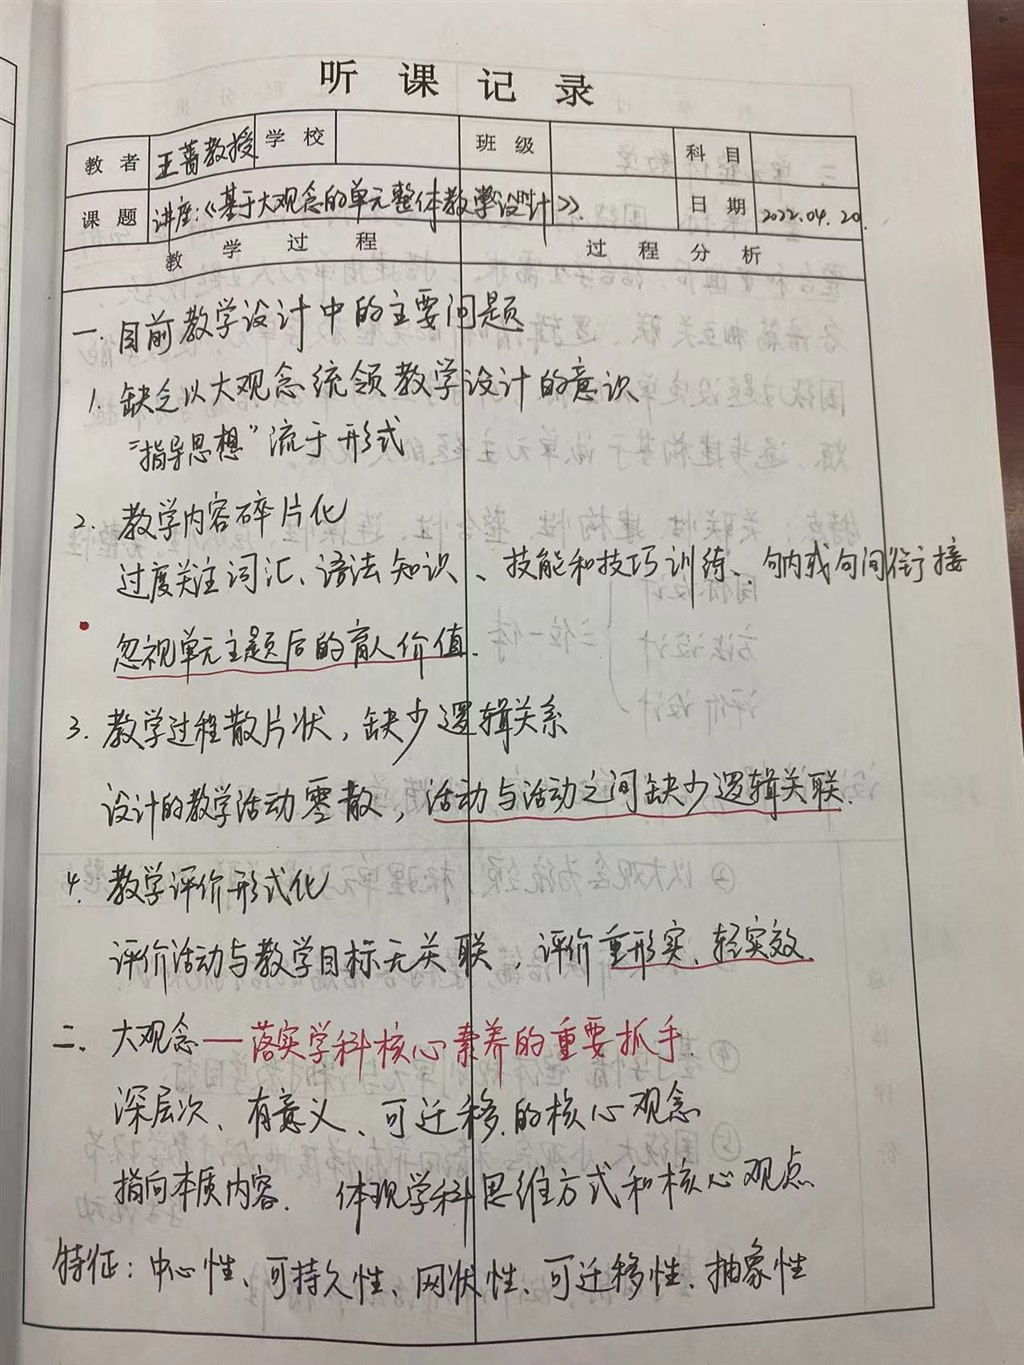 听课记录
教者 王菁教授 学校 班级 科目
课题 讲座：《基于大观念的单元整体教学设计》. 课时 日期 2022.04.20.
教学过程 过程分析
一. 目前教学设计中的主要问题
1. 缺乏以大观念统领教学设计的意识
“指导思想”流于形式
2. 教学内容碎片化
过度关注词汇、语法知识、技能和技巧训练、句内或句间衔接
忽视单元主题后的育人价值.
3. 教学过程散片状，缺少逻辑关系
设计的教学活动零散，活动与活动之间缺少逻辑关联.
4. 教学评价形式化
评价活动与教学目标无关联，评价重形实、轻实效.
二. 大观念——落实学科核心素养的重要抓手.
深层次、有意义、可迁移的核心观念
指向本质内容. 体现学科思维方式和核心观点
特征：中心性、可持久性、网状性、可迁移性、抽象性